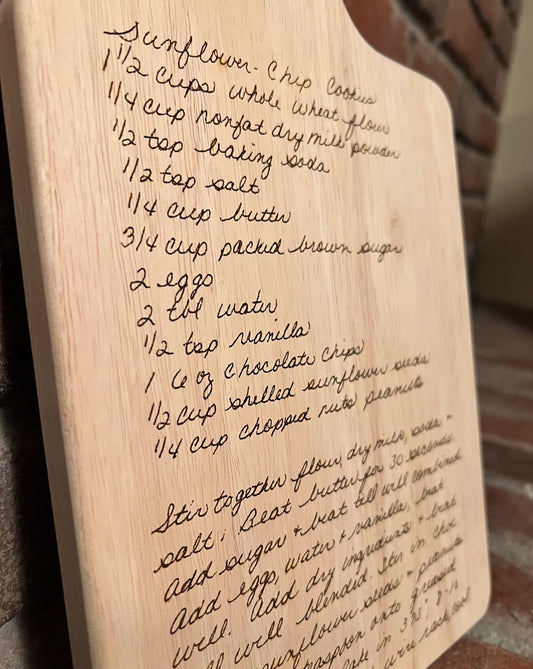 Sunflower-Chip Cookies
1 1/2 cups whole wheat flour
1/4 cup nonfat dry milk powder
1/2 tsp baking soda
1/2 tsp salt
1/4 cup butter
3/4 cup packed brown sugar
2 eggs
2 tbl water
1/2 tsp vanilla
1 6 oz chocolate chips
1/2 cup shelled sunflower seeds
1/4 cup chopped nuts peanuts
Stir together flour, dry milk, soda +
salt; Beat butter for 30 seconds.
Add sugar + beat till well combined
Add eggs, water + vanilla, beat
well. Add dry ingredients + beat
till well blended. Stir in choc
sunflower seeds + peanuts
teaspoon onto greased
Bake in 375°; 8-10
wire rack, cool